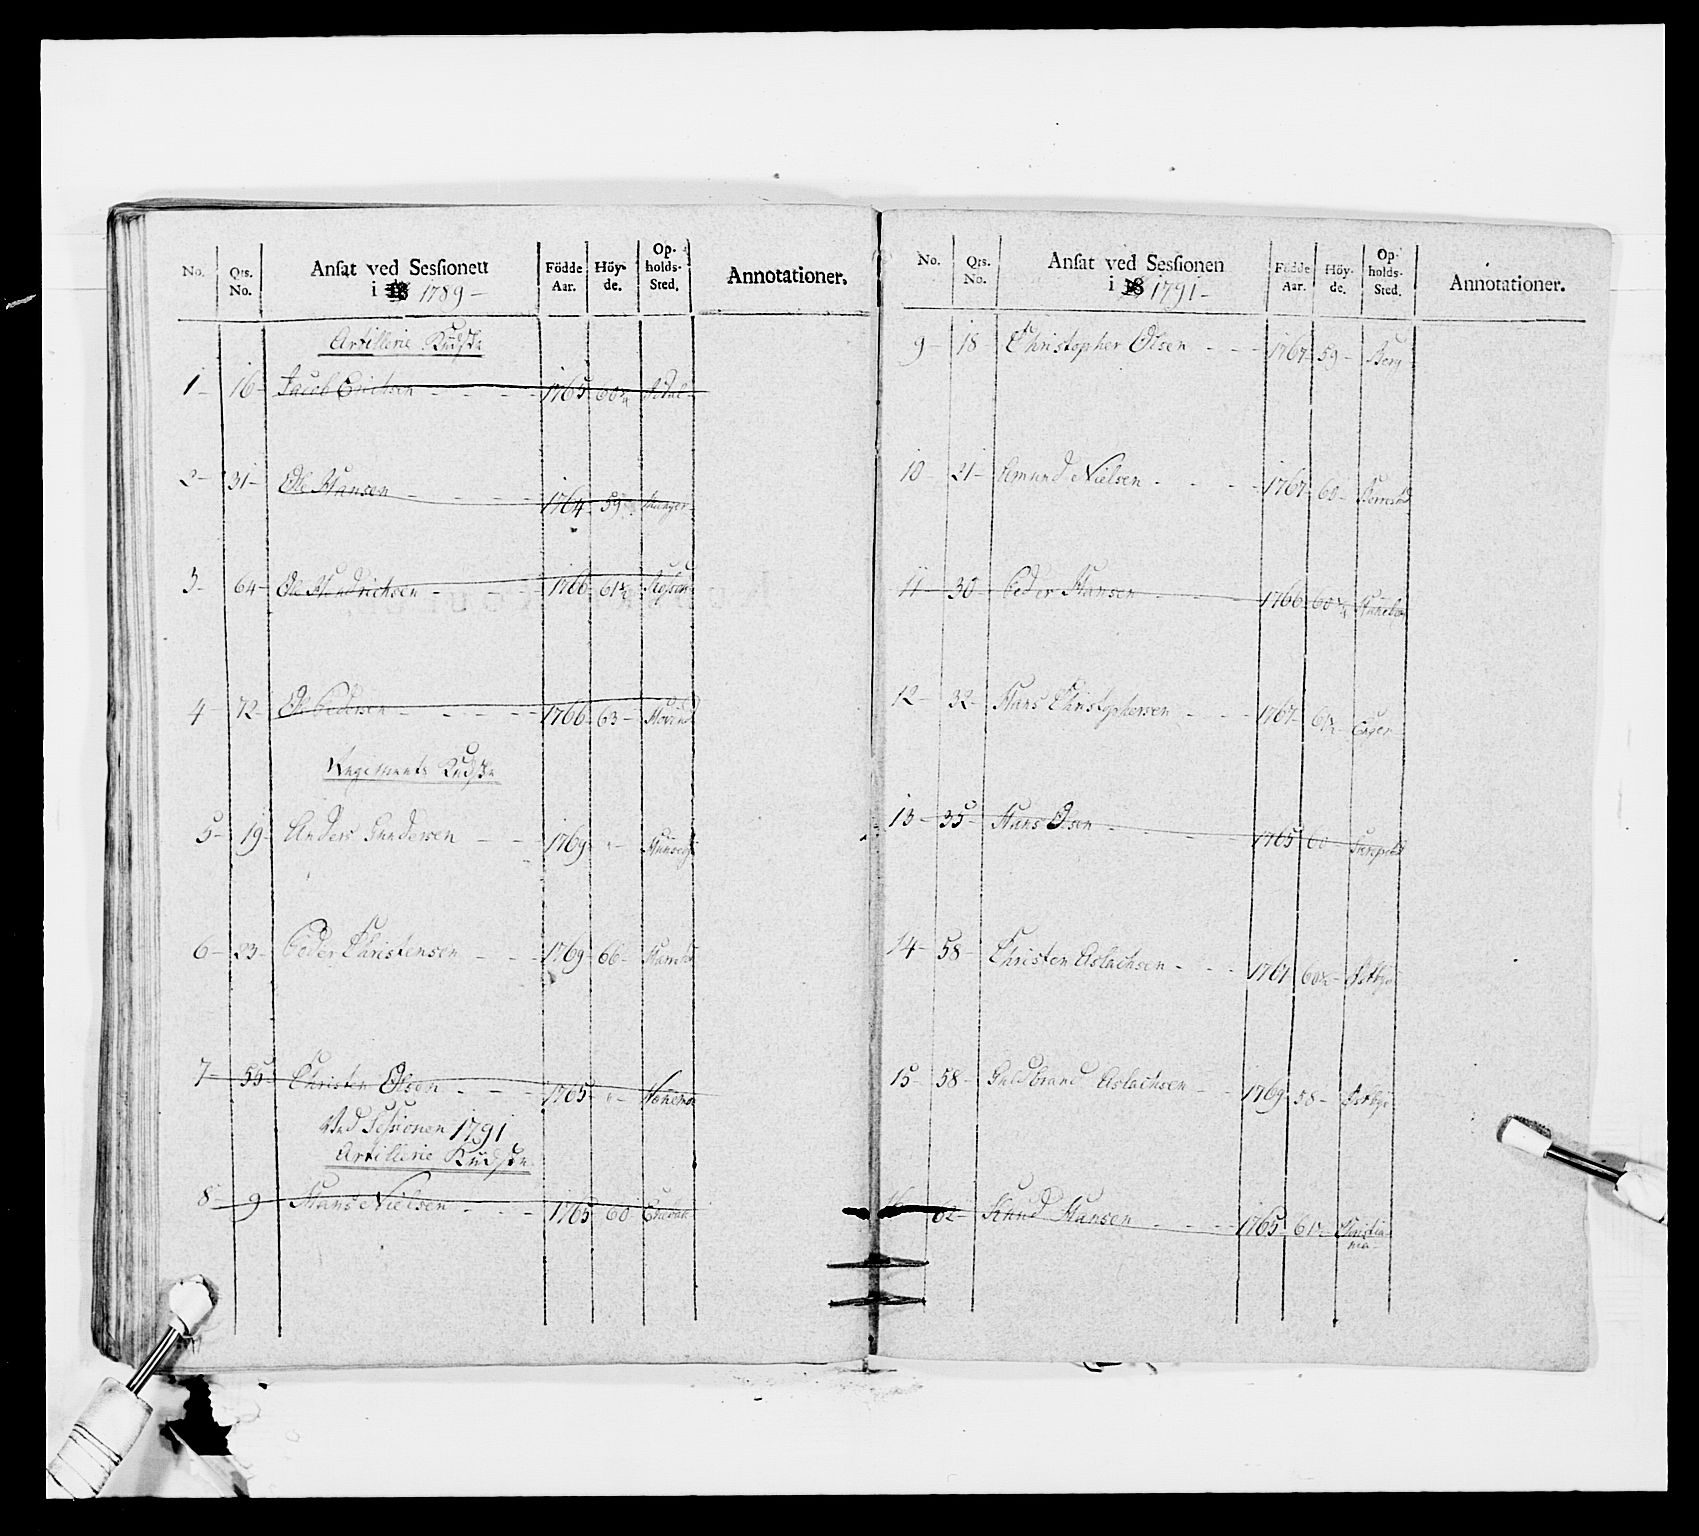 No. Qrs. No. Ansat ved Sessionen i 1789 Födde Aar. Höy- de. Op- holds- Sted. Annotationer.
Artillerie Kudske
1 16 Jacob Erichsen 1765 60¾
2 31 Ole Hansen 1764 59
3 64 Ole Hendrichsen 1766 61½
4 72 Ole Pedersen 1766 63
Regiments Kudske
5 19 Anders Gundersen 1769 "
6 23 Peder Christensen 1769 66
7 55 Christen Olsen 1765 "
Ved Sessionen 1791
Artillerie Kudske
8 9 Hans Nielsen 1765 60
No. Qrs. No. Ansat ved Sessionen i 18 1791 Födde Aar. Höy- de. Op- holds- Sted. Annotationer.
9 18 Christopher Olsen 1767 59 Berg
10 21 Amund Nielsen 1767 60
11 30 Peder Hansen 1766 60¾
12 32 Hans Christophersen 1767 61½
13 35 Hans Osen 1765 60
14 58 Christen Aslachsen 1767 60½ Østbye
15 58 Guldbrand Aslachsen 1769 58 Østbye
16 62 Knud Hansen 1765 61½ Christia-
nia